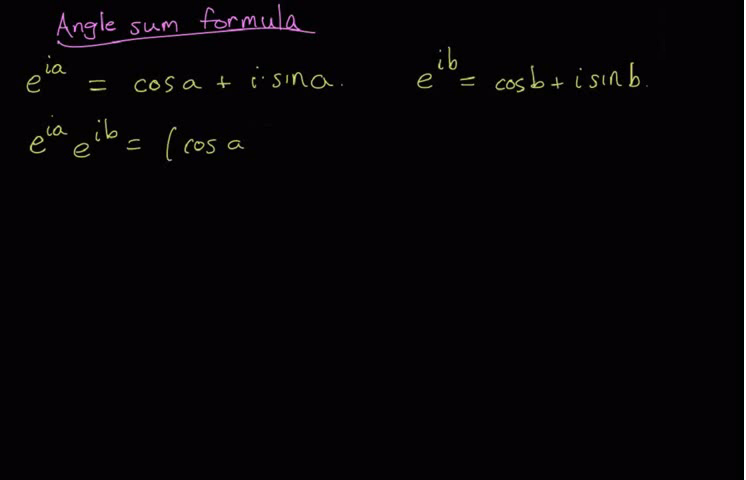 Angle sum formula
e^{ia} = cos a + i·sin a. e^{ib} = cos b + i sin b.
e^{ia} e^{ib} = (cos a